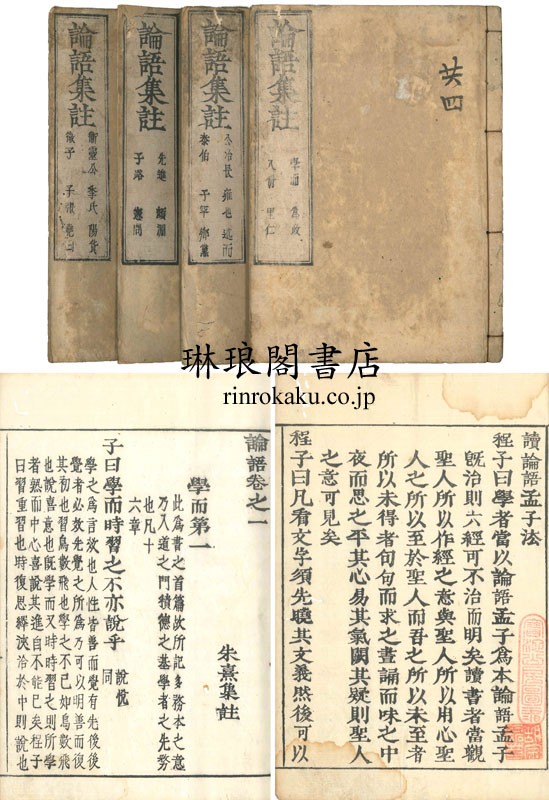 共四
論語集註
學而 爲政
八佾 里仁
論語集註
公冶長 雍也 述而
泰伯 子罕 鄉黨
論語集註
先進 顏淵
子路 憲問
論語集註
衞靈公 季氏 陽貨
微子 子張 堯曰
琳琅閣書店
rinrokaku.co.jp
讀論語孟子法
程子曰學者當以論語孟子爲本論語孟子
旣治則六經可不治而明矣讀書者當觀
聖人所以作經之意與聖人所以用心聖
人之所以至於聖人而吾之所以未至者
所以未得者句句而求之晝誦而味之中
夜而思之平其心易其氣闕其疑則聖人
之意可見矣
程子曰凡看文字須先曉其文義然後可以
論語卷之一
朱熹集註
學而第一
此爲書之首篇故所記多務本之意
乃入道之門積德之基學者之先務
也凡十
六章
子曰學而時習之不亦說乎 說悅
同
學之爲言效也人性皆善而覺有先後後
覺者必效先覺之所爲乃可以明善而復
其初也習鳥數飛也學之不已如鳥數飛
也說喜意也旣學而又時時習之則所學
者熟而中心喜說其進自不能已矣程子
曰習重習也時復思繹浹洽於中則說也